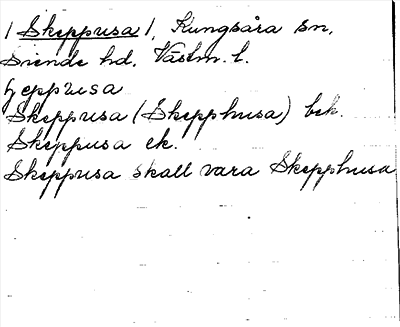 / Skeppusa /, Kungsåra sn,
Siende hd. Västm. l.
Skeppusa (Skepphusa) bek.
Skeppusa ek.
Skeppusa skall vara Skepphusa